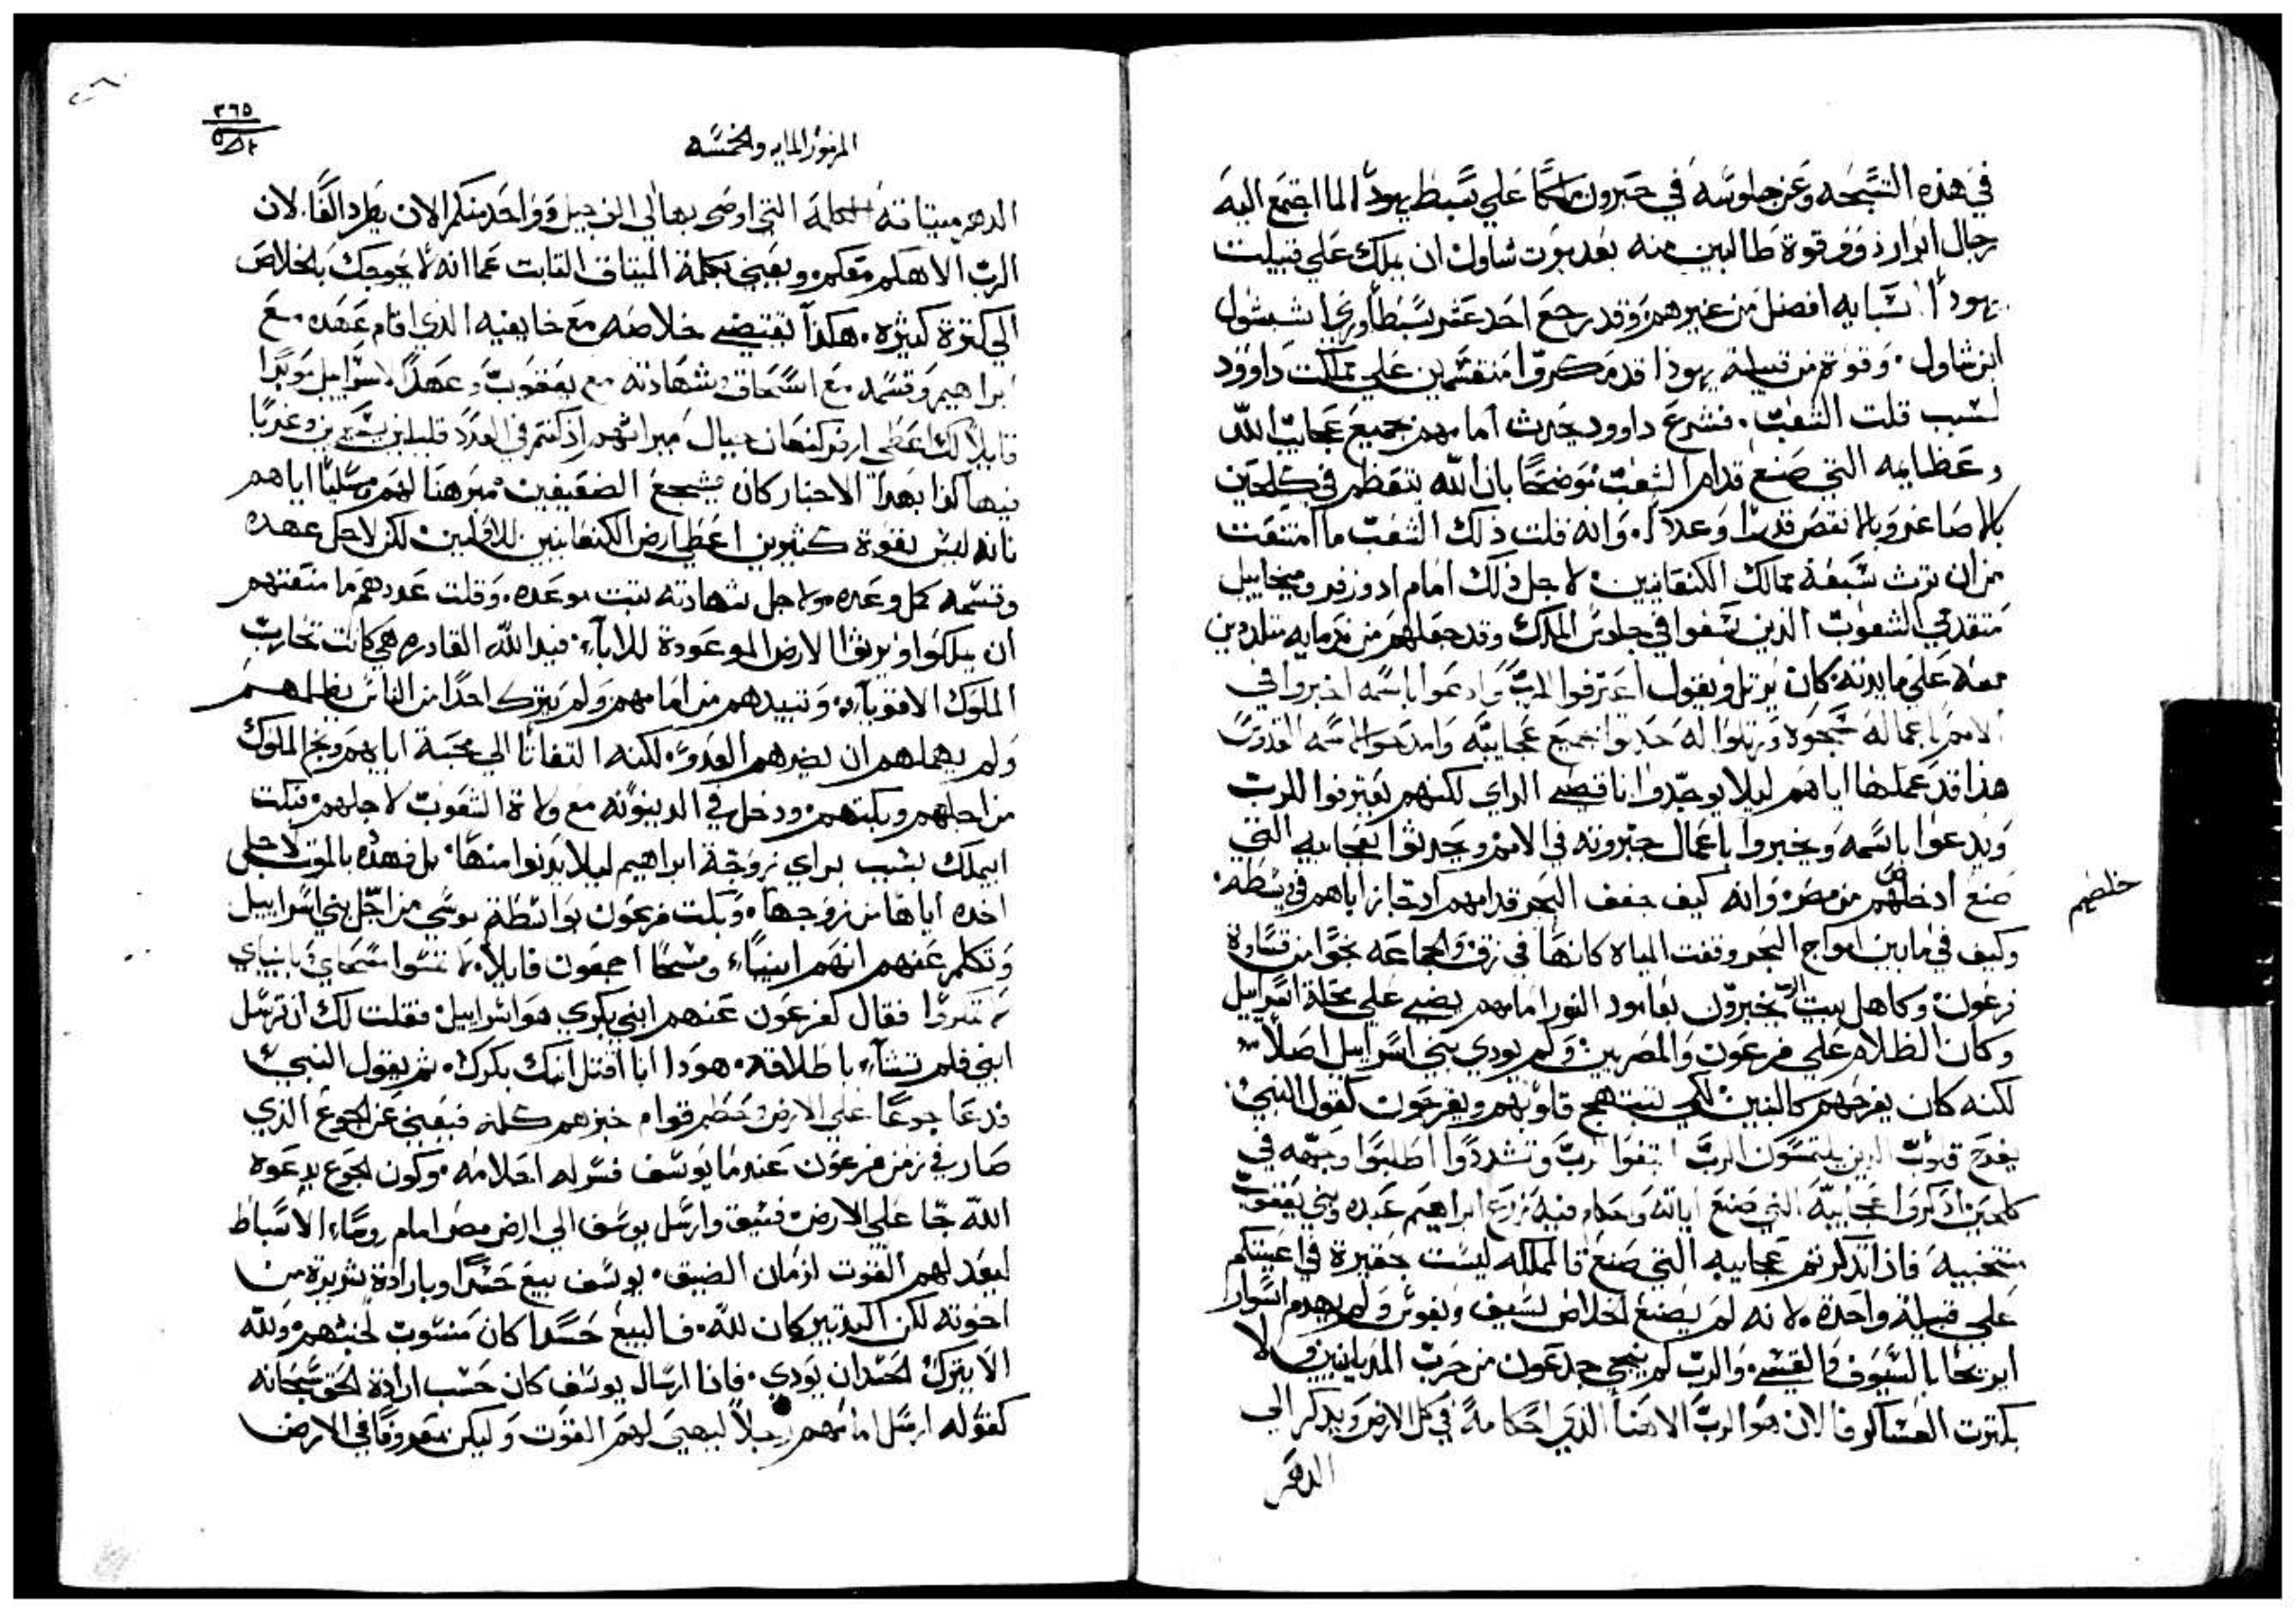 في هذه التسبحه وعن جلوسه في حبرون ملكًا علي سبط يهودا لما اجتمع اليه
رجال ابرار ذوو قوة طالبين منه بعد موت شاول ان يملك علي قبيلت
يهودا افضل من غيرهم وقد رجع احد عشر سبطًا وري اشبشول
ابن شاول. وقوة من قبيلة يهوذا قد منقسمين علي مملكت داوود
لسبب قلت الشعب. فشرع داوود يحدث امامهم جميع عجايب الله
وعظايمه التي صنع قدام الشعب موضحًا بان الله يتعظم في كلحين
بالاصاغر وبالانقص قدرًا وعددًا. وانه قلت ذلك الشعب ما امتنعت
من ان ترث سبعة ممالك الكنعانيين لاجل ذلك امام ادوزفر وميخاييل
متقدمي الشعوب الذين سعوا في جلوس الملك وقد جعلهم من ندمايه متلددين
معه علي مايدته كان يرتل ويقول اعترفوا للرب وادعوا باسمه اخبروا في
الامم باعماله سبحوه ورتلوا له حدثوا بجميع عجايبه وامدحوا اسمه القدوس
هذا قد عملها اياهم ليلا يوجدوا ناقصي الراي لكنهم يعترفوا للرب
ويدعوا باسمه ويخبروا باعمال جبروته في الامم ويحدثوا بعجايبه التي
صنع اد خلصهم من مصر وانه كيف جفف البحر قدامهم اد اجاز اياهم في وسطه
خلصهم
وكيف في ما بين امواج البحر وقفت المياه كانها في زق والجماعه نجوا من قساوة
فرعون وكاهل بيت يخبرون بعامود النور امامهم يضي علي محلة اسراييل
وكان الظلام علي فرعون والمصريين ولم يودي بني اسراييل اصلًا
لكنه كان يفرحهم كالبنين لكي تبتهج قلوبهم ويفرحون كقول النبي
يفرح قلوب الذين يلتمسون الرب ابتغوا الرب وتشددوا اطلبوا وجهه في
كلحين اذكروا عجايبه التي صنع اياته واحكام فيه زرع ابراهيم عبده وبني يعقوب
منتخبيه فاذا تذكرتم عجايبه التي صنع فالمملكه ليست حقيرة في اعينكم
علي قبيلة واحدة لانه لم يصنع الخلاص بسيف وبقوس ولم يهدم اسوار
اريحا بالسيوف والقسي. والرب لم ينجي جدعون من حرب المديانيين
بكترت العساكر فالان هو الرب الاهنا الذي احكامه في كل الارض ويذكر الي
الدهر
٣٦٥
المزمور المايه والخمسه
الدهر ميتاقه الكلمة التي اوصى بها الي الف جيل وواحد منكم الان يطرد الفًا. لان
الرب الاهكم معكم ويعني بكلمة الميتاق الثابت عما انه لا يحوجك بالخلاص
الي كترة كثيره. هكذا تقتضي خلاصه مع خايفيه الذي اقام عهده مع
ابراهيم وقسمه مع اسحاق وشهادته مع يعقوب وعهدًا لاسراييل موبدًا
قايلًا لك اعطي ارض كنعان حبال ميراثهم اذ كنتم في العدد قليلين وغربًا
فيها كذا بهذا الاخبار كان يشجع الضعيفين مبرهنًا لهم ومسليًا اياهم
بانه ليس بقوة كثيرين اعطي ارض الكنعانيين للاولين لكن لاجل عهده
وقسمه كمل وعده ولاجل شهادته ثبت موعده. وقلت عددهم ما منعتهم
ان يملكوا ويرثوا الارض الموعودة للابآء. فيد الله القادره هي كانت تحارب
الملوك الاقوياء وتبيدهم من امامهم ولم يترك احدًا من الناس يظلمهم
ولم يهملهم ان يضرهم العدو. لكنه التفاتًا الي محبة اباهم وبخ الملوك
من اجلهم وبكتهم ودخل في الدينونه مع ولاة الشعوب لاجلهم بكت
ابيملك بسبب براي زوجة ابراهيم ليلا يدنوا منها. بل فهدده بالموت لاجل
اخده اياها من زوجها. وبكت فرعون بواسطة موسي من اجل بني اسراييل
وتكلم عنهم انهم انبياء ومسحًا اجمعون قايلًا. لا تمسوا مسحاي وبانبياي
لا تمكروا فقال كفرعون عنهم ابني بكري هو اسراييل فقلت لك ان ترسل
ابني فلم تشآء باطلاقه. هودا انا اقتل ابنك بكرك. ثم يقول النبي
فدعا جوعًا علي الارض وحطم قوام خبزهم كله فيعني عن الجوع الذي
صار في زمن فرعون عندما يوسف فسر له احلامه. وكون الجوع بدعوة
الله جا علي الارض فسبق وارسل يوسف الي ارض مصر امام روساء الاسباط
ليعد لهم القوت ازمان الضيق. يوسف بيع حسدًا وبارادة شريرة من
اخوته لكن التدبير كان لله. فالبيع حسدًا كان منسوب لخبثهم ولله
الا يترك الحسد ان يودي. فاذا ارسال يوسف كان حسب ارادة الحق سبحانه
كقوله ارسل امامهم رجلًا ليهيي لهم القوت وليكن معروفًا في الارض